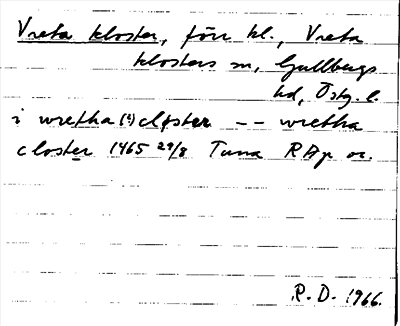 Vreta kloster, förr kl., Vreta
klosters sn, Gullbergs
hd, Östg. l.
i wretha (?) closter -- wretha
closter 1465 29/8 Tuna RAp or.
R.D. 1966.